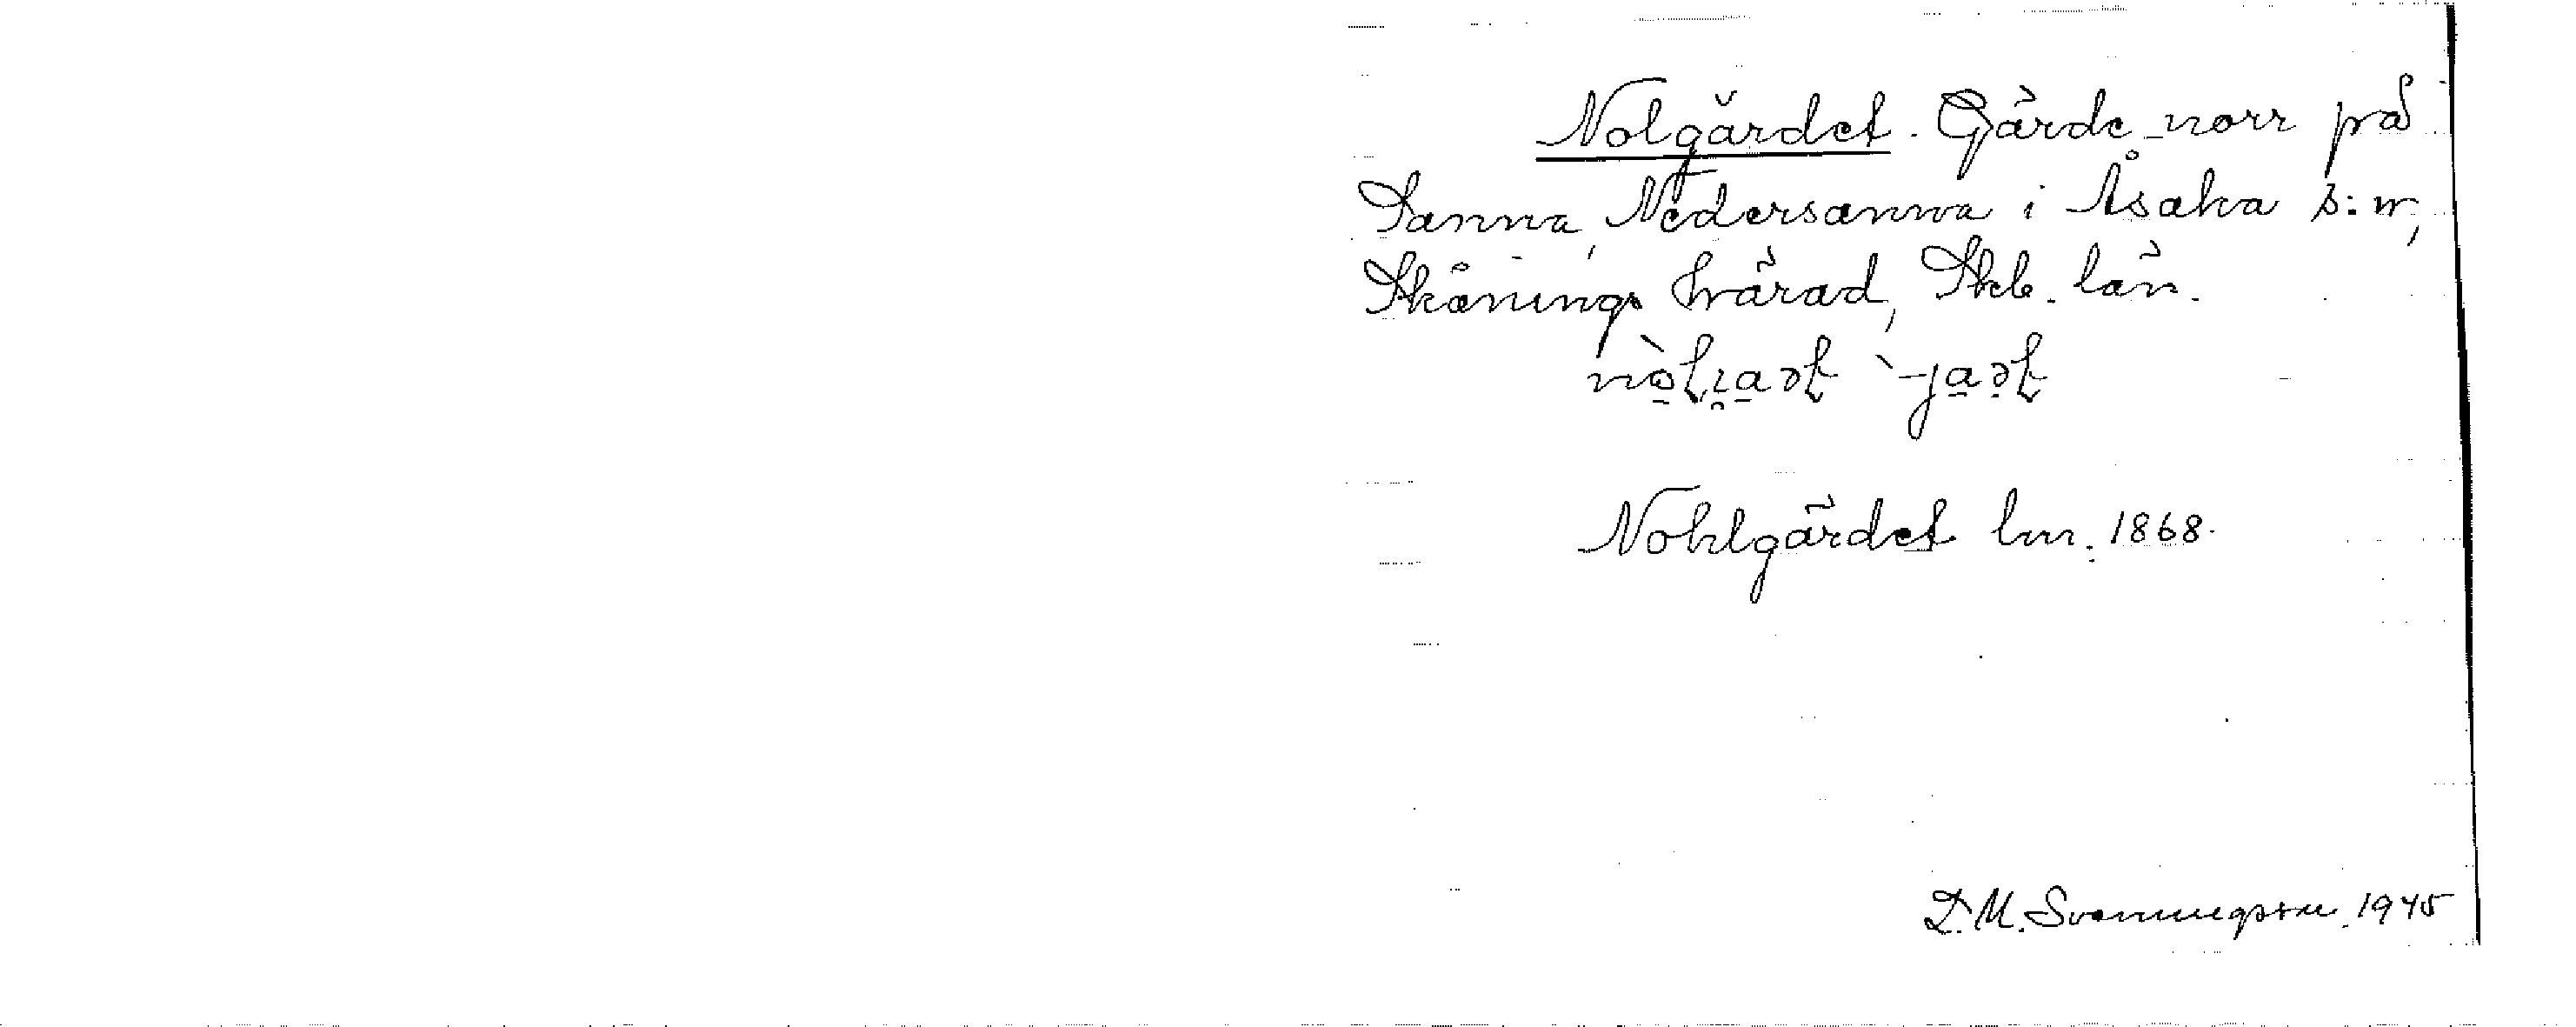 Nolgärdet. Gärde norr på
Sanna, Nedersanna i Åsaka s:n,
Skånings härad, Skb. län.
Nohlgärdet lm. 1868.
D. M. Svenningsson 1945